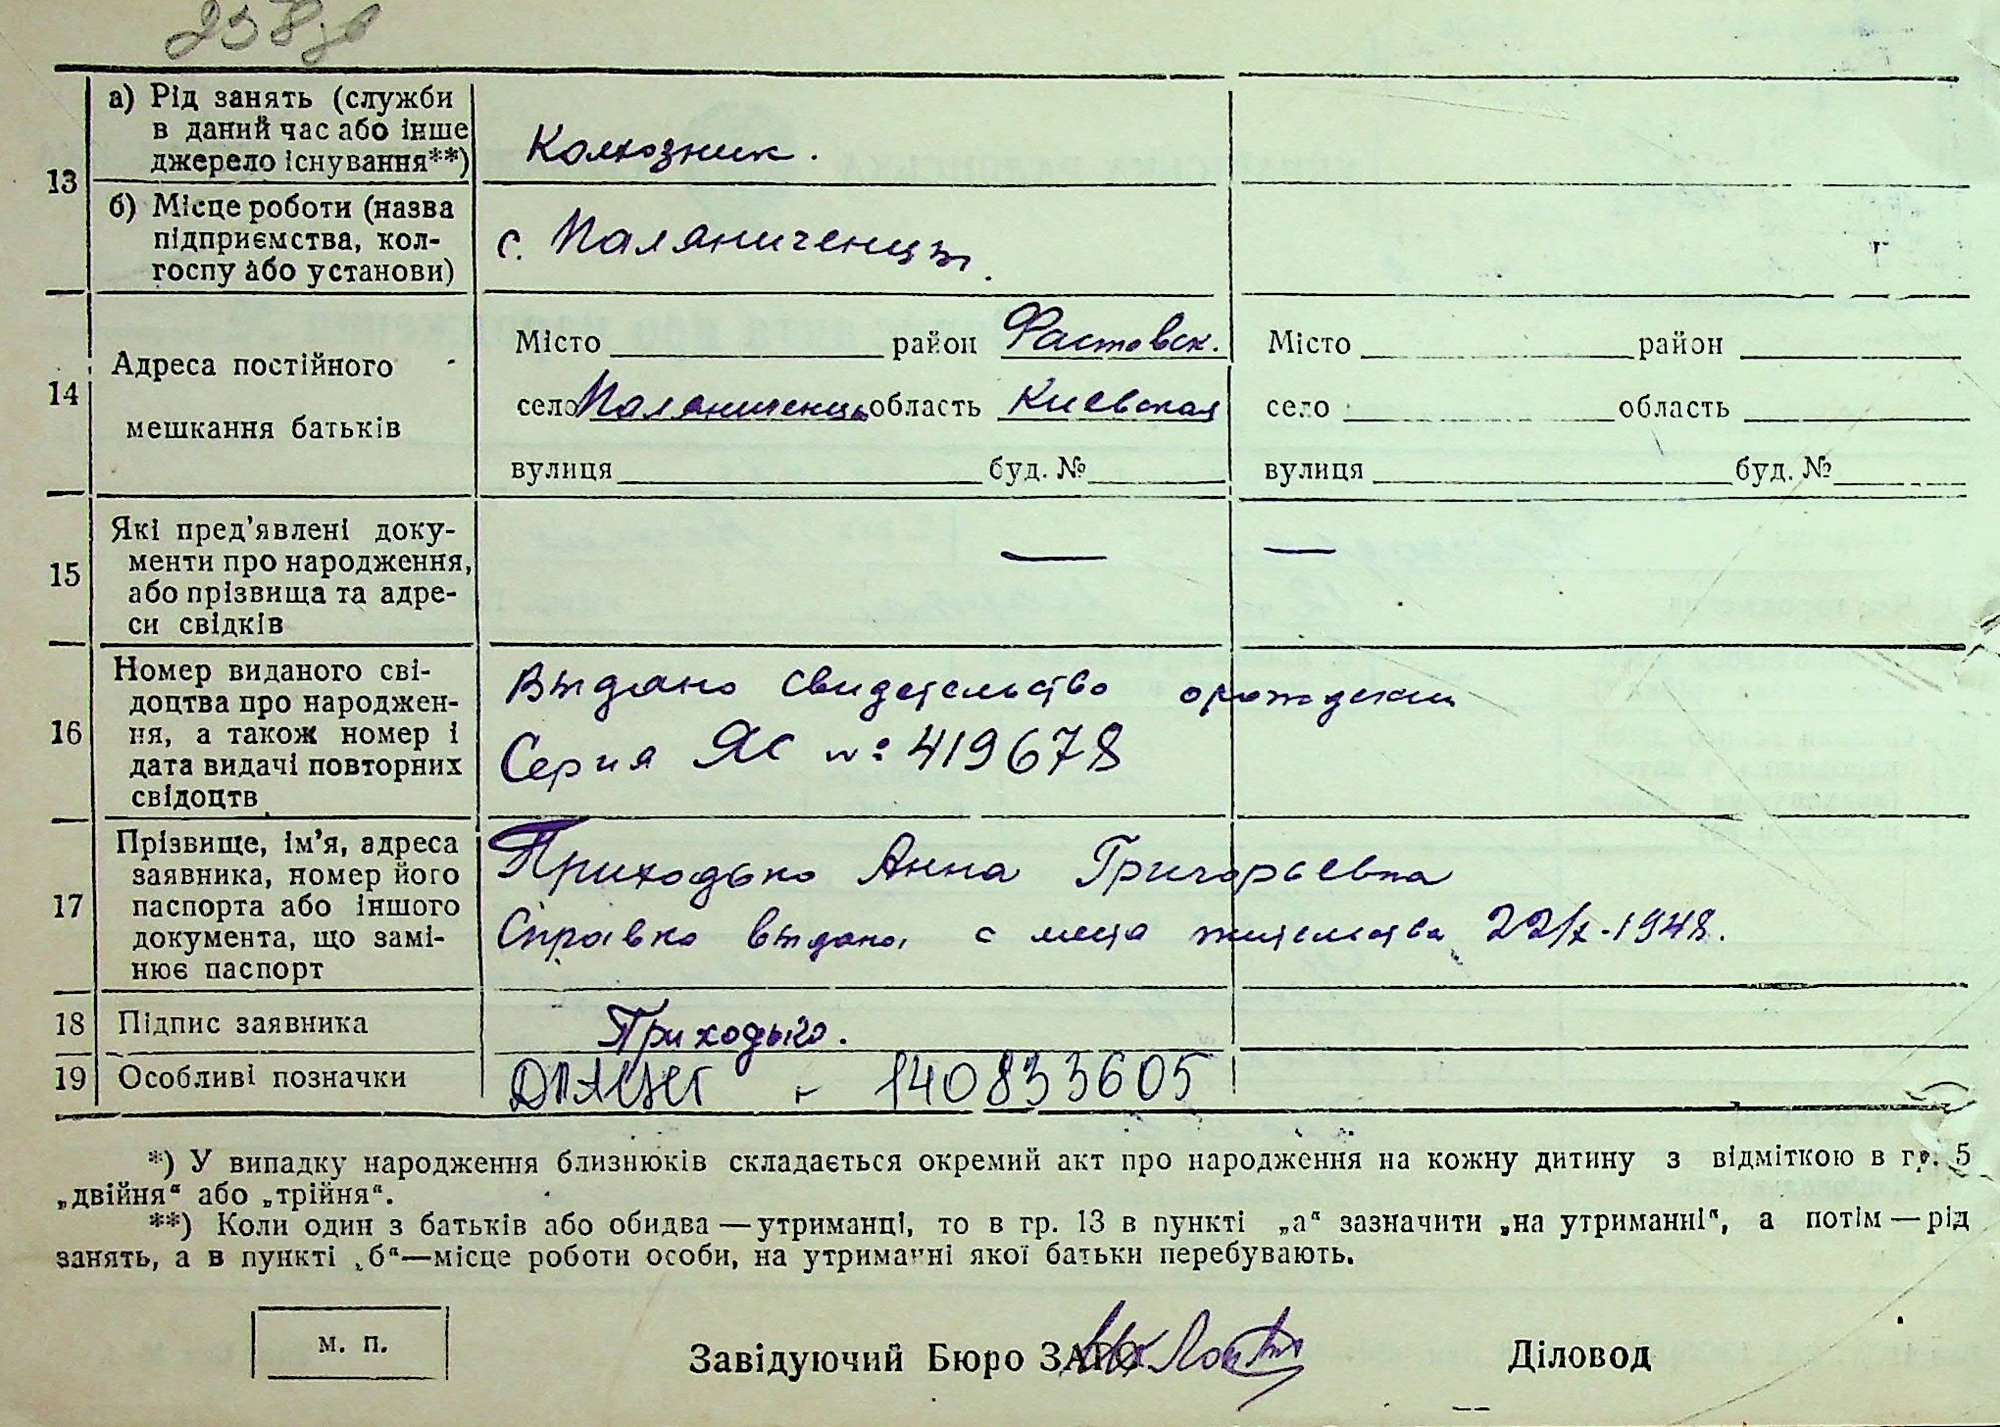 258зв
13
а) Рід занять (служби
в даний час або інше
джерело існування**)
Колхозник.
б) Місце роботи (назва
підприємства, кол-
госпу або установи)
с. Паляниченцы.
14
Адреса постійного
мешкання батьків
Місто район Фастовск.
село Паляниченцы область Киевская
вулиця буд. №
Місто район
село область
вулиця буд. №
15
Які пред'явлені доку-
менти про народження,
або прізвища та адре-
си свідків
— —
16
Номер виданого сві-
доцтва про народжен-
ня, а також номер і
дата видачі повторних
свідоцтв
Выдано свидетельство о рождении
Серия ЯС № 419678
17
Прізвище, ім'я, адреса
заявника, номер його
паспорта або іншого
документа, що замі-
нює паспорт
Приходько Анна Григорьевна
Справка выдана с места жительства 22/X-1948.
18
Підпис заявника
Приходько.
19
Особливі позначки
- 140833605
*) У випадку народження близнюків складається окремий акт про народження на кожну дитину з відміткою в гр. 5
„двійня“ або „трійня“.
**) Коли один з батьків або обидва—утриманці, то в гр. 13 в пункті „а“ зазначити „на утриманні“, а потім—рід
занять, а в пункті „б“—місце роботи особи, на утриманні якої батьки перебувають.
м. п.
Завідуючий Бюро ЗАГС
Діловод